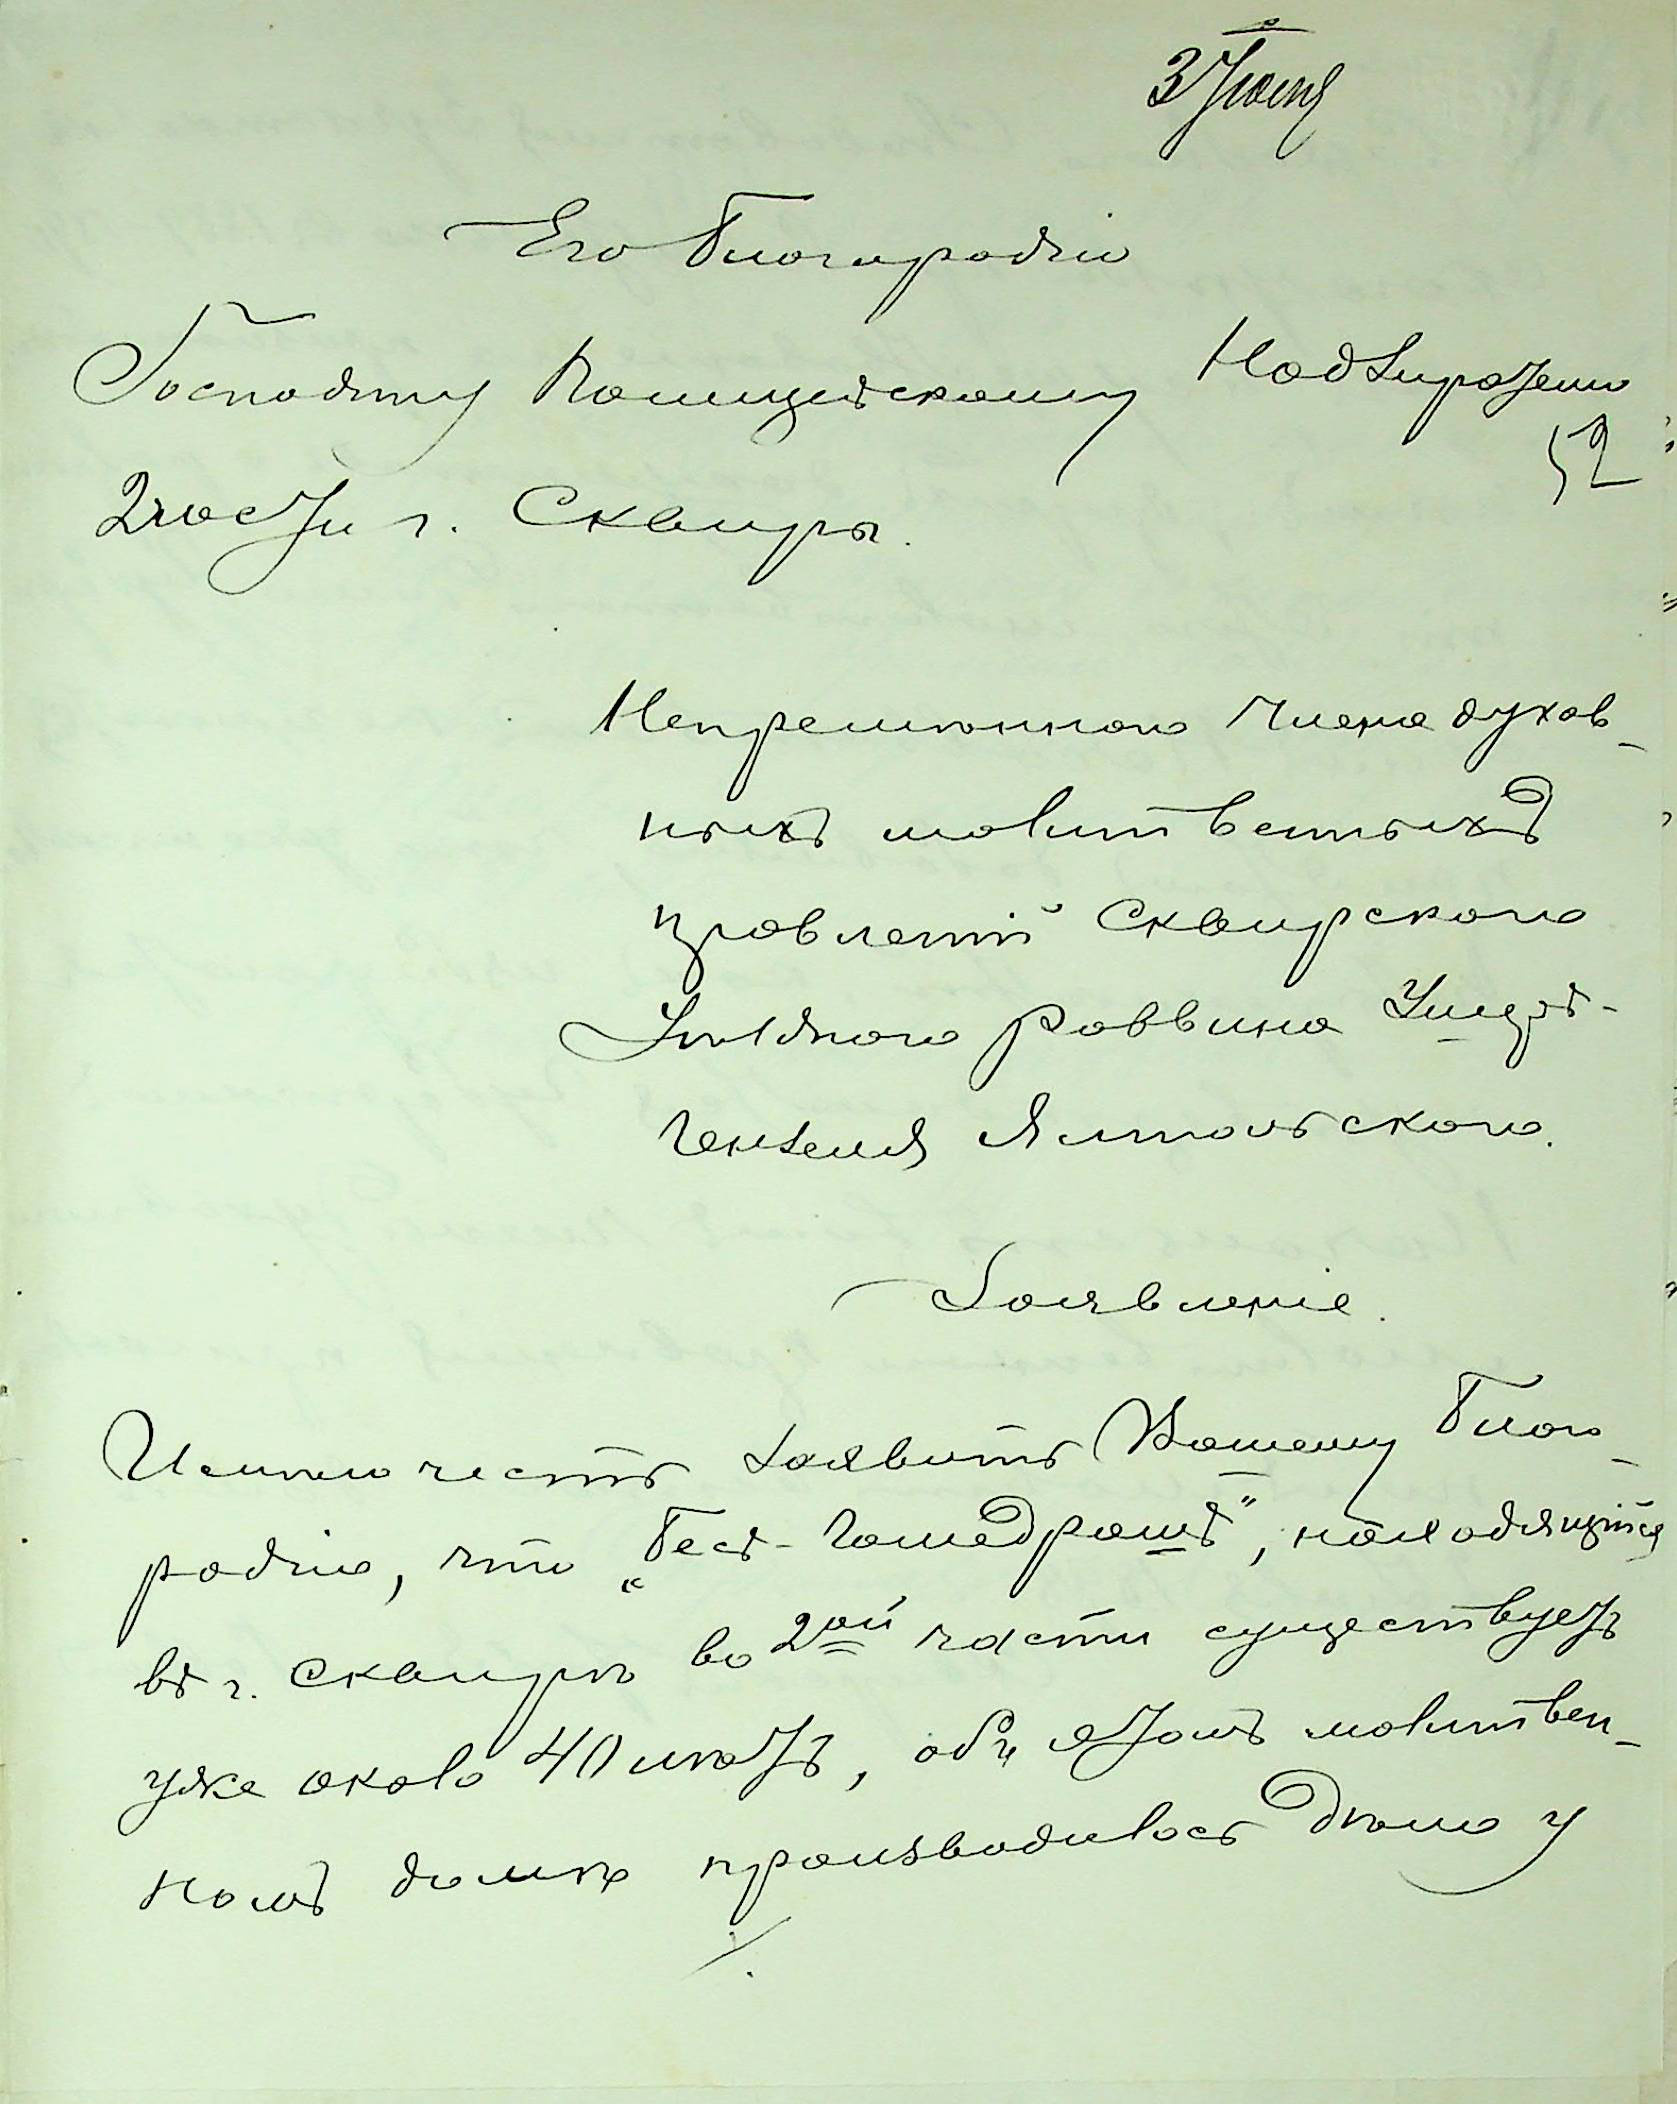 3 Іюня
Его Благородію
Господину Полицейскому Надзирателю
52
2 части г. Сквиры.
Непремѣннаго члена духов-
ныхъ молитвенныхъ
правленій Сквирскаго
Уѣзднаго раввина
Гензеля Ямпольскаго.
Заявленіе.
Имѣю честь заявить Вашему Благо-
родію, что „Бесъ-Гамедрашъ“, находящійся
въ г. Сквирѣ во 2ой части существуетъ
уже около 40 лѣтъ, объ этомъ молитвен-
номъ домѣ производилось дѣло у